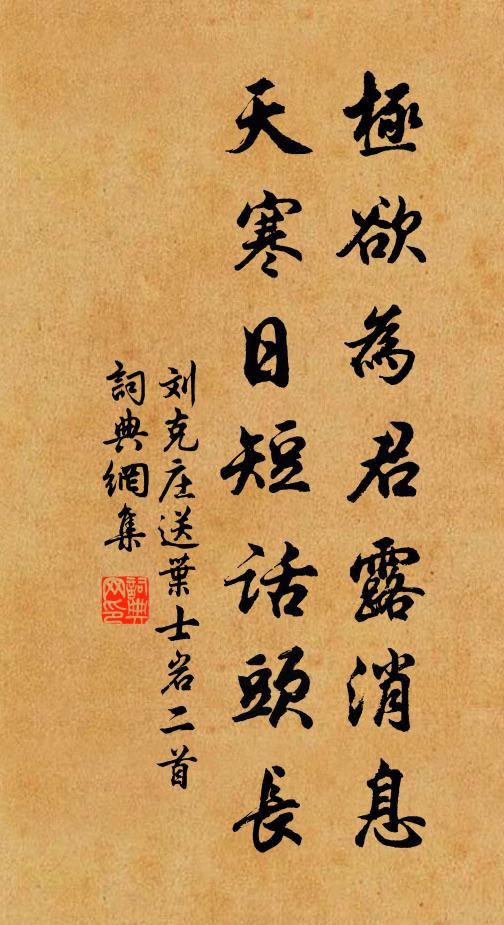 極欲為君露消息
天寒日短話頭長
刘克庄送葉士岩二首
詞典網集
詞典网印